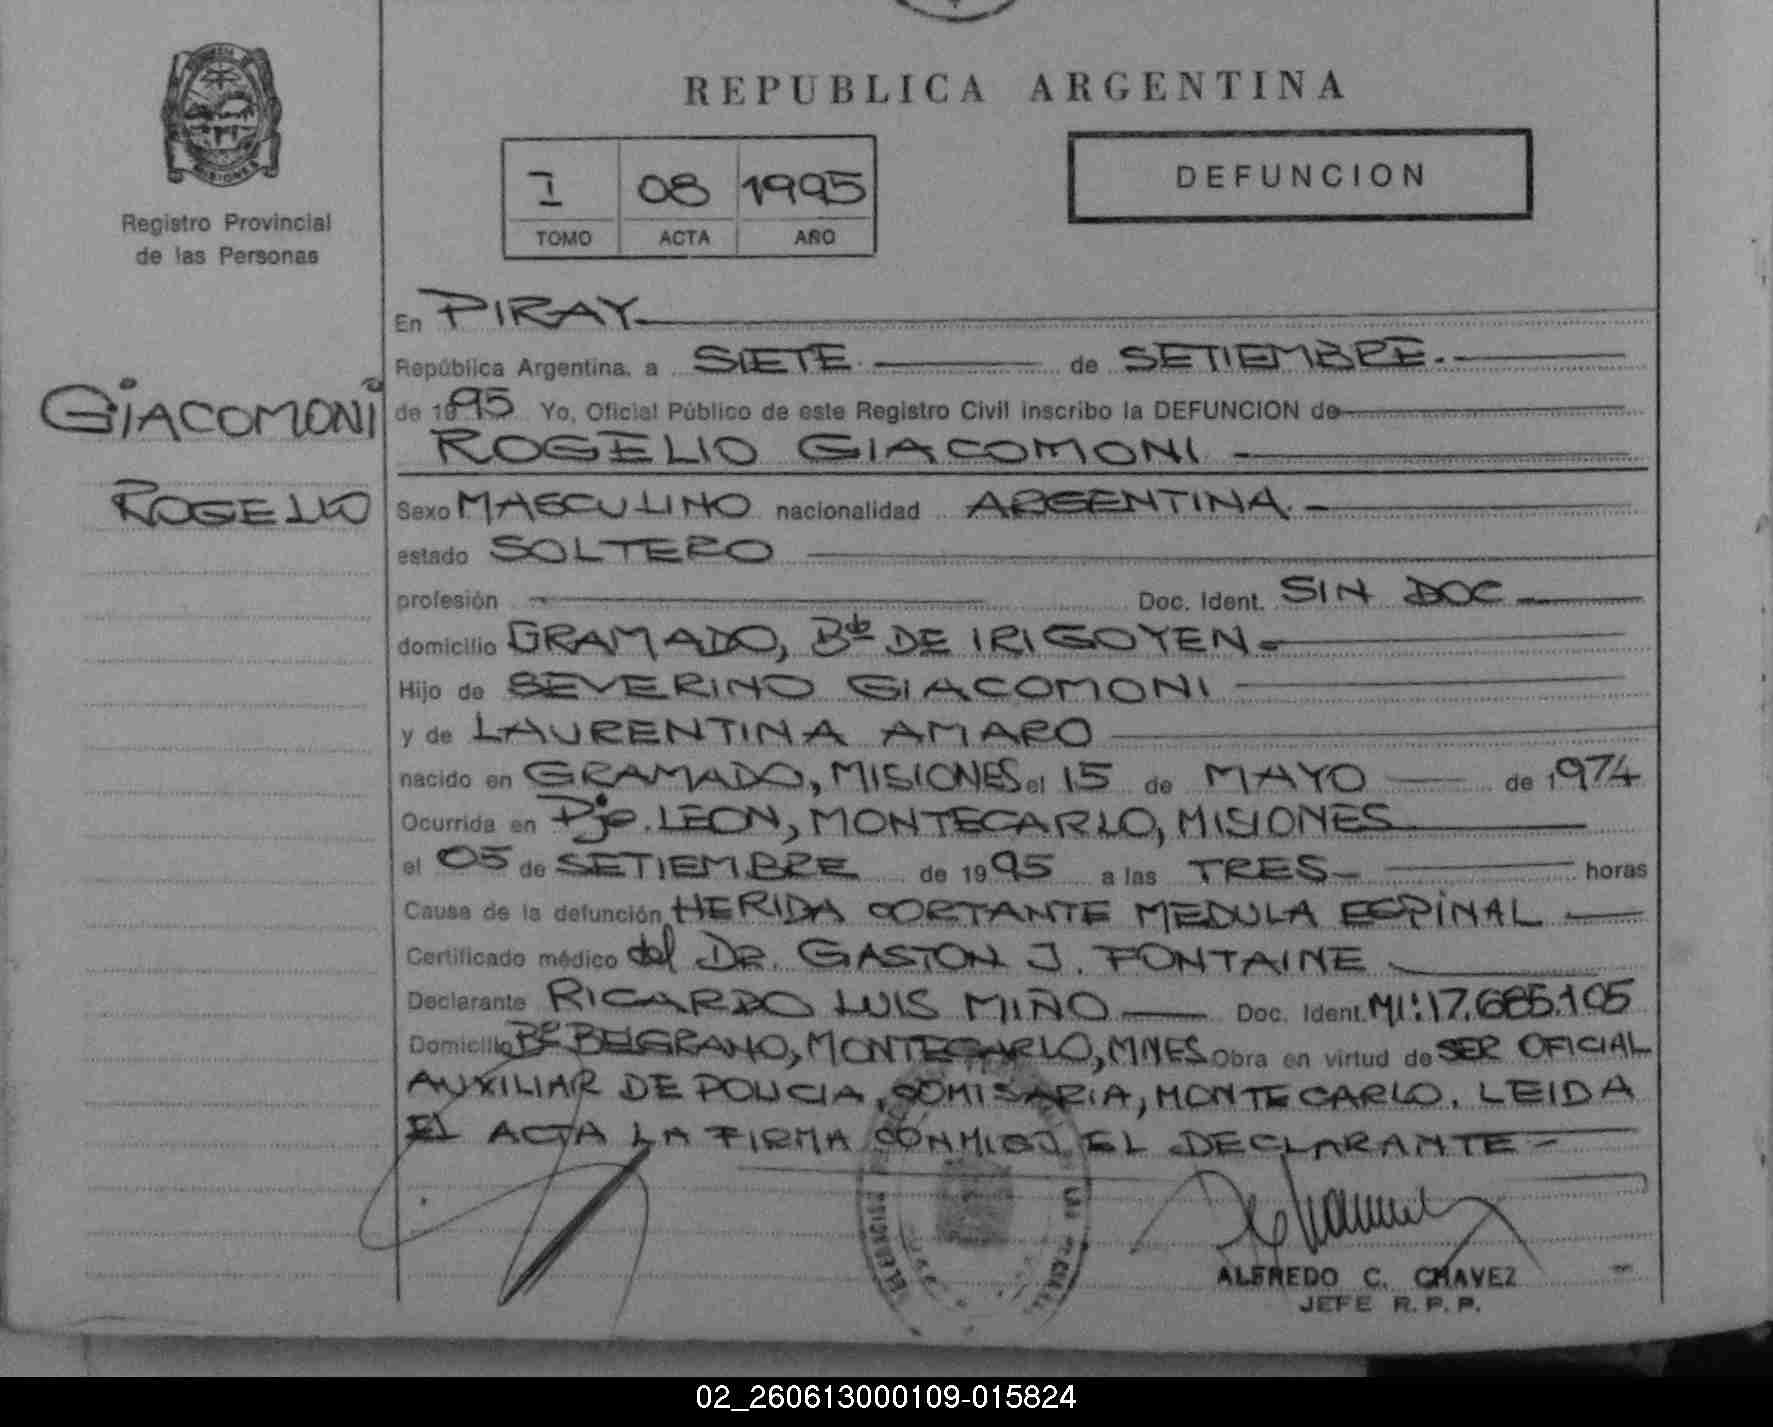 REPUBLICA ARGENTINA
I 08 1995
TOMO ACTA AÑO
DEFUNCION
MISIONES
Registro Provincial
de las Personas
GIACOMONI
ROGELIO
En PIRAY
República Argentina, a SIETE de SETIEMBRE.
de 1995 Yo, Oficial Público de este Registro Civil inscribo la DEFUNCION de
ROGELIO GIACOMONI
Sexo MASCULINO nacionalidad ARGENTINA.
estado SOLTERO
profesión Doc. Ident. SIN DOC
domicilio GRAMADO, Bdo DE IRIGOYEN
Hijo de SEVERINO GIACOMONI
y de LAURENTINA AMARO
nacido en GRAMADO, MISIONES el 15 de MAYO de 1974
Ocurrida en Pje. LEON, MONTECARLO, MISIONES
el 05 de SETIEMBRE de 1995 a las TRES horas
Causa de la defunción HERIDA CORTANTE MEDULA ESPINAL
Certificado médico del DR. GASTON J. FONTAINE
Declarante RICARDO LUIS MIÑO Doc. Ident. MI: 17.685.105
Domicilio Bº BELGRANO, MONTECARLO, MNES Obra en virtud de SER OFICIAL
AUXILIAR DE POLICIA, COMISARIA, MONTECARLO. LEIDA
EL ACTA LA FIRMA CONMIGO EL DECLARANTE
ALFREDO C. CHAVEZ
JEFE R.P.P.
02_260613000109-015824